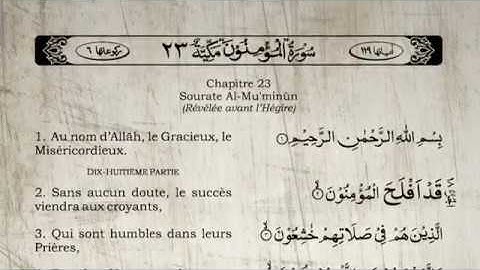 ركوعاتها ٦ سُورَةُ الْمُؤْمِنُوْنَ مَكِّيَّةٌ ٢٣ اٰيَاتُهَا ١١٩
Chapitre 23
Sourate Al-Mu'minūn
(Révélée avant l'Hégire)
1. Au nom d'Allāh, le Gracieux, le
Miséricordieux.
بِسْمِ اللّٰهِ الرَّحْمٰنِ الرَّحِيْمِ ۝١
DIX-HUITIÈME PARTIE
2. Sans aucun doute, le succès
viendra aux croyants,
قَدْ اَفْلَحَ الْمُؤْمِنُوْنَ ۝٢
3. Qui sont humbles dans leurs
Prières,
الَّذِيْنَ هُمْ فِيْ صَلَاتِهِمْ خٰشِعُوْنَ ۝٣